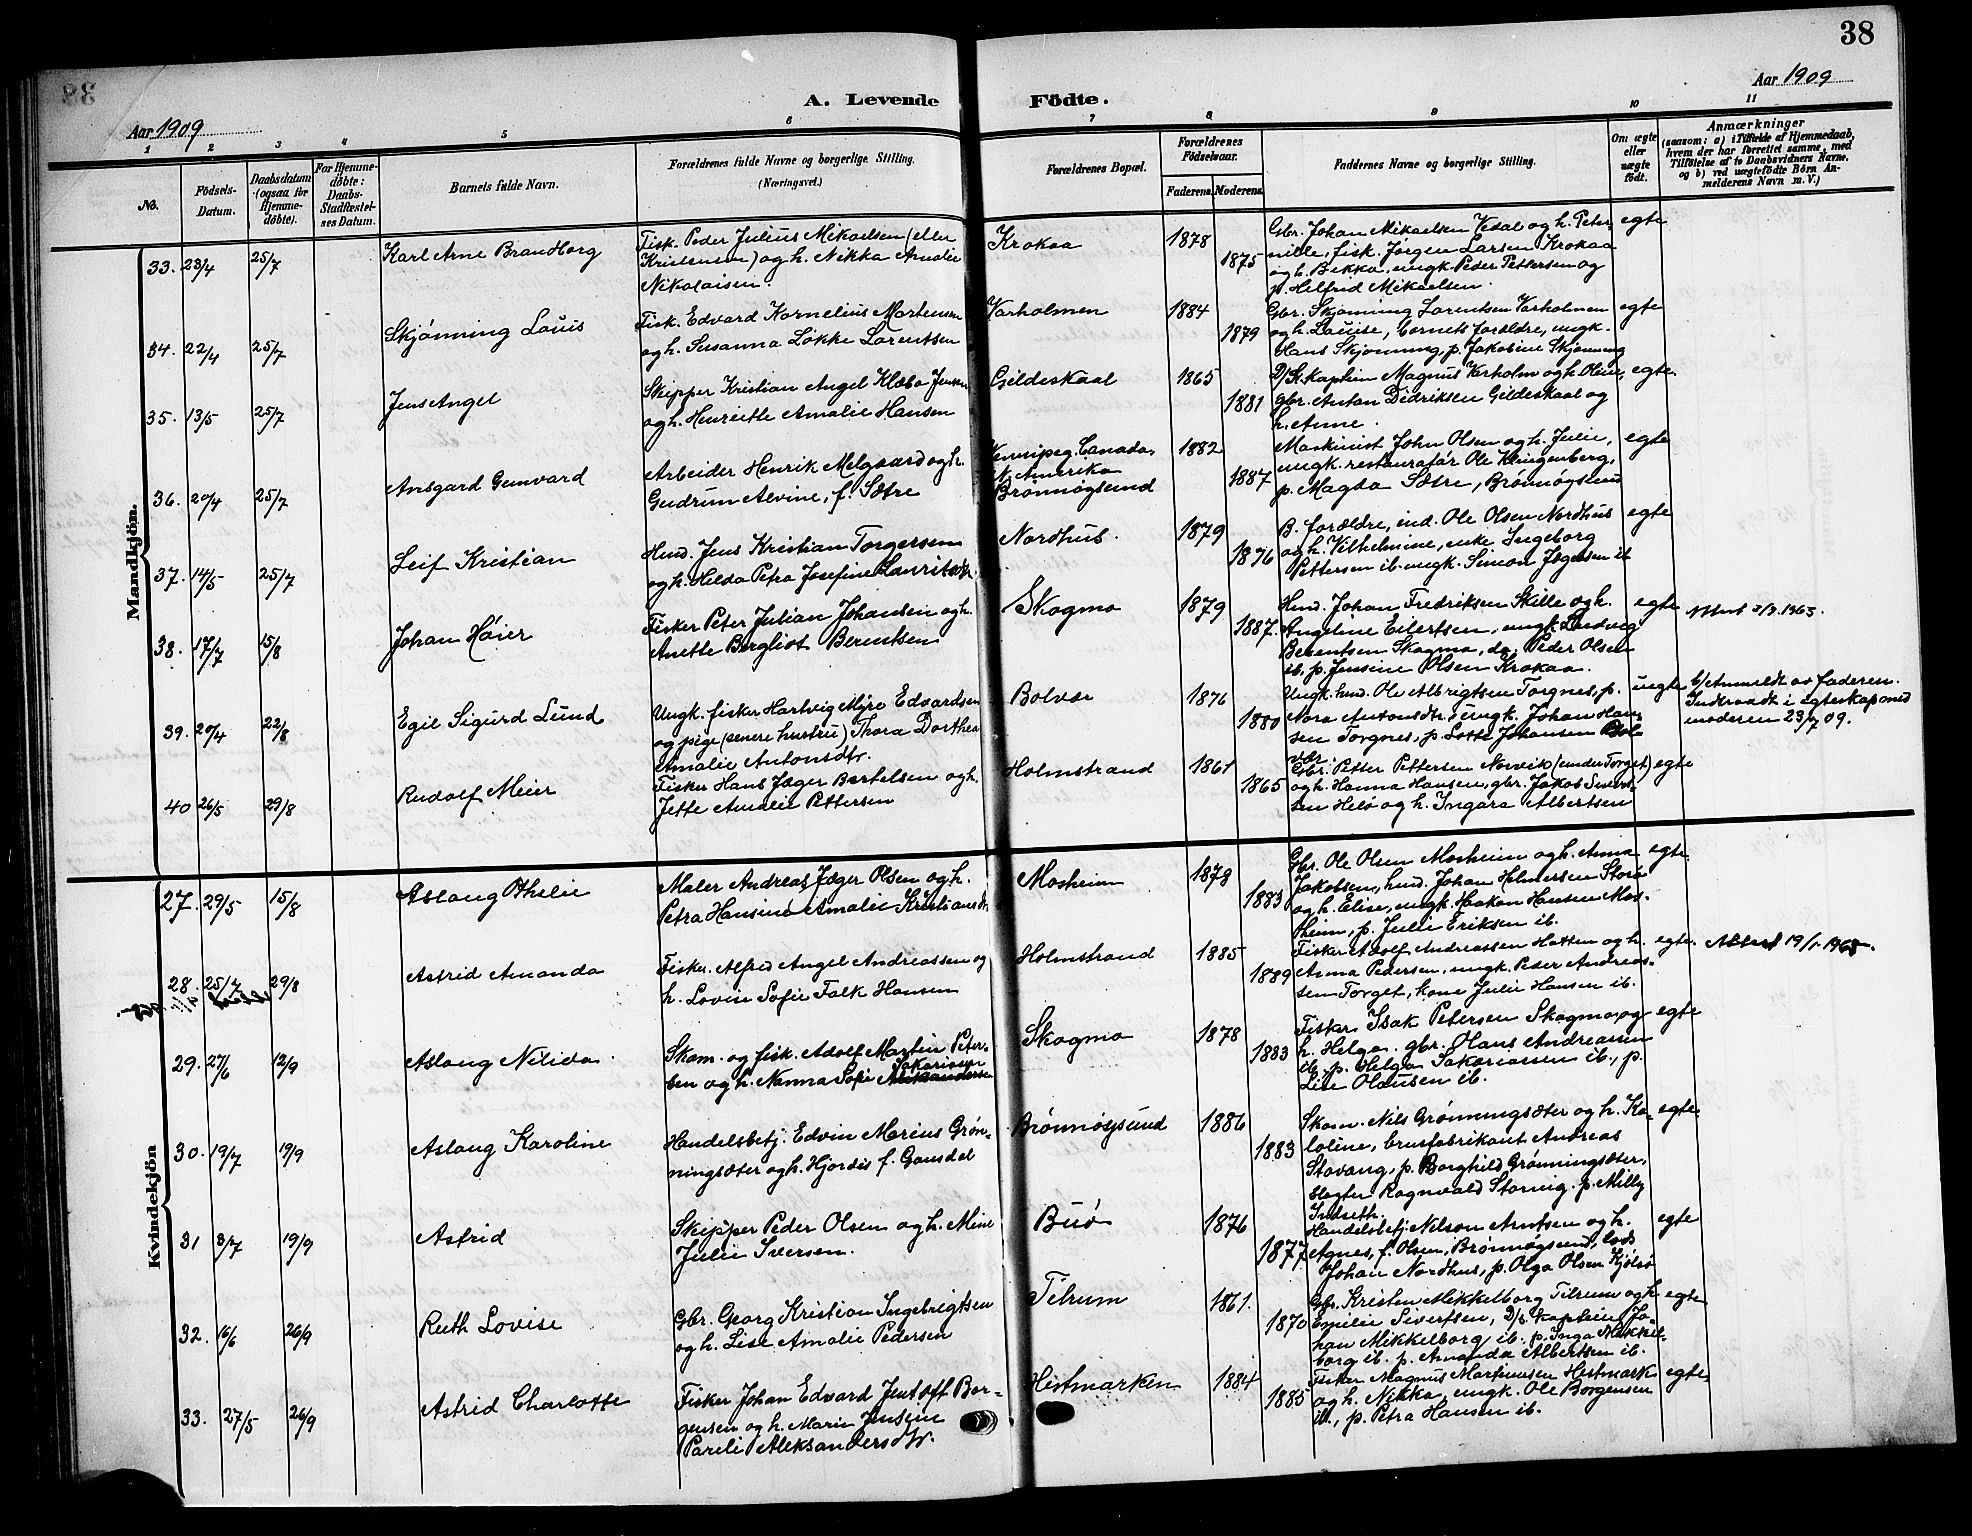 38
Aar 1909
A. Levende Födte.
Aar 1909
1 2 3 4 5 6 7 8 9 10 11
No.
Födsels-Datum.
Daabsdatum (ogsaa for Hjemme-döbte).
For Hjemme-döbte: Daabs-Stadfæstel-ses Datum.
Barnets fulde Navn.
Forældrenes fulde Navne og borgerlige Stilling.
(Næringsvei.)
Forældrenes Bopæl.
Forældrenes Födselsaar.
Faderens. Moderens.
Faddernes Navne og borgerlige Stilling.
Om ægte eller uægte födt.
Anmærkninger
(saasom: a) i Tilfælde af Hjemmedaab,
hvem der har forrettet samme, med
Tilföielse af to Daabsvidners Navne.
og b) ved uægtefödte Börn An-
melderens Navn m. V.)
Mandkjön.
33. 23/4 25/7 Karl Arne Brandborg
Fisk. Peder Julius Mikaelsen (eller
Kristensen) og h. Nikka Amalie
Nikolaisen.
Krokaa 1878 1875
Gbr. Johan Mikaelsen Vedal og h. Peter-
nille, fisk. Jørgen Larsen Krokaa
og h. Bekka, ungk. Peder Pettersen og
p. Helfrid Mikaelsen.
egte
34. 22/4 25/7 Skjønning Louis
Fisk. Edvard Kornelius Mortensen
og h. Susanna Løkke Lorentsen
Varholmen 1884 1879
Gbr. Skjønning Lorentsen Varholmen
og h. Louise, barnets forældre, ungk.
Hans Skjønning, p. Jakobine Skjønning
egte
35. 13/5 25/7 Jens Angel
Skipper Kristian Angel Klæbo Jensen
og h. Henriette Amalie Hansen
Gildeskaal 1865 1881
D/Sk. kaptein Magnus Varholm og h. Oline,
gbr. Antan Didriksen Gildeskaal og
h. Anne.
egte
36. 20/4 25/7 Ansgard Gunvard
Arbeider Henrik Melgaard og h.
Gudrun Alvine, f. Sætre
Vennipeg. Canada,
N. Amerika
Brønnøysund
1882 1887
Maskinist John Olsen og h. Julie,
ungk. restauratør Ole Klingenberg,
p. Magda Sætre, Brønnøysund
egte
37. 14/5 25/7 Leif Kristian
Hmd. Jens Kristian Torgersen
og h. Hilda Petra Josefine Lauritsdtr
Nordhus. 1879 1876
B. forældre, ind. Ole Olsen Nordhus
og h. Vilhelmine, enke Ingeborg
Pettersen ib. ungk. Simon
egte
38. 17/7 15/8 Johan Høier
Fisker Peter Julian Johansen og h.
Anette Bergliot Berntsen
Skogmo 1879 1887.
Hmd. Johan Fredriksen Skille og h.
Angeline Eilertsen, ungk. Ludvig
Berentsen Skogmo, do. Peder Olsen
ib. p. Jensine Olsen Krokaa.
egte
Attest 2/3. 1963.
39. 20/4 22/8 Egil Sigurd Lund
Ungk. fisker Hartvig Myre Edvardsen
og pige (senere hustru) Thora Dorthea
Amalie Antonsdtr.
Bolvær 1876 1880
Ungk. hmd. Ole Albrigtsen Torgnes, p.
Nora Antonsdtr. ungk. Johan Han-
sen Torgnes, p. Lotte Johansen Bol-
vær.
uegte
b/Anmeldt av faderen.
Indtraadt i egteskap med
moderen 23/7 09.
40 26/5 29/8 Rudolf Meier
Fisker Hans Jæger Bertelsen og h.
Jette Amalie Pettersen
Holmstrand 1861 1865
Gbr. Petter Pettersen Norvik (under Torget)
og h. Hanna Hansen, gbr. Jakob Sivert-
sen Helø og h. Ingara Albertsen
egte
Kvindekjön
27. 29/5 15/8 Aslaug Othelie
Maler Andreas Jæger Olsen og h.
Petra Hansine Amalie Kristiansdtr.
Mosheim 1878 1883
Gbr. Ole Olsen Mosheim og h. Anna
Jakobsen, hmd. Johan Helmersen Storø
og h. Elise, ungk. Haakon Hansen Mos-
heim, p. Julie Eriksen ib.
egte.
28. 25/7 29/8 Astrid Amanda
Fisker. Alfred Angel Andreassen og
h. Lovise Sofie Falk Hansen
Holmstrand 1885 1889
Fisker Adolf Andreassen Hatten og h.
Anna Pedersen, ungk. Peder Andreas-
sen Torget, kone Julie Hansen ib.
egte.
Attest 19/1. 1968.
29. 27/6 12/9 Aslaug Nilida
Skom. og fisk. Adolf Martin Peter-
sen og h. Nanna Sofie Sakariasen
Skogmo 1878 1883
Fisker Isak Petersen Skogmo og
h. Helga. gbr. Olaus Andreassen
ib. p. Helga Sakariassen ib., p.
Lise Olausen ib.
egte
30. 19/7 19/9 Aslaug Karoline
Handelsbetj. Edvin Marius Grøn-
ningsæter og h. Hjørdis f. Gansdal
Brønnøysund 1886 1883
Skom. Nils Grønningsæter og h. Ka-
roline, brusfabrikant Andreas
Stavang, p. Borghild Grønningsæter,
slagter Ragnvald Storvig. p. Milly
Indseth.
egte.
31 3/7 19/9 Astrid
Skipper Peder Olsen og h. Mine
Julie Iversen.
Buø 1876 1877
Handelsbetj. Nilson Arntsen og h.
Agnes, f. Olsen, Brønnøysund, lods
Johan Nordhus, p. Olga Olsen Kjølsø
egte
32. 16/6 26/9 Ruth Lovise
Gbr. Georg Kristian Ingebrigtsen
og h. Lise Amalie Pedersen
Tilrum 1861. 1870
Gbr. Kristen Mikkelborg Tilrum og h.
Emilie Sivertsen, D/s kaptein Jo-
han Mikkelborg ib. p. Inga Mikkel-
borg ib. p. Amanda Albertsen ib.
egte
33. 27/5 26/9 Astrid Charlotte
Fisker Johan Edvard Jentoft Bor-
gensen og h. Marie Jensine
Pareli Aleksandersdtr.
Hestmarken 1884 1885
Fisker Magnus Martinusen Hestmark
og h. Nikka, ungk. Ole Borgensen
ib., p. Petra Hansen ib.
egte